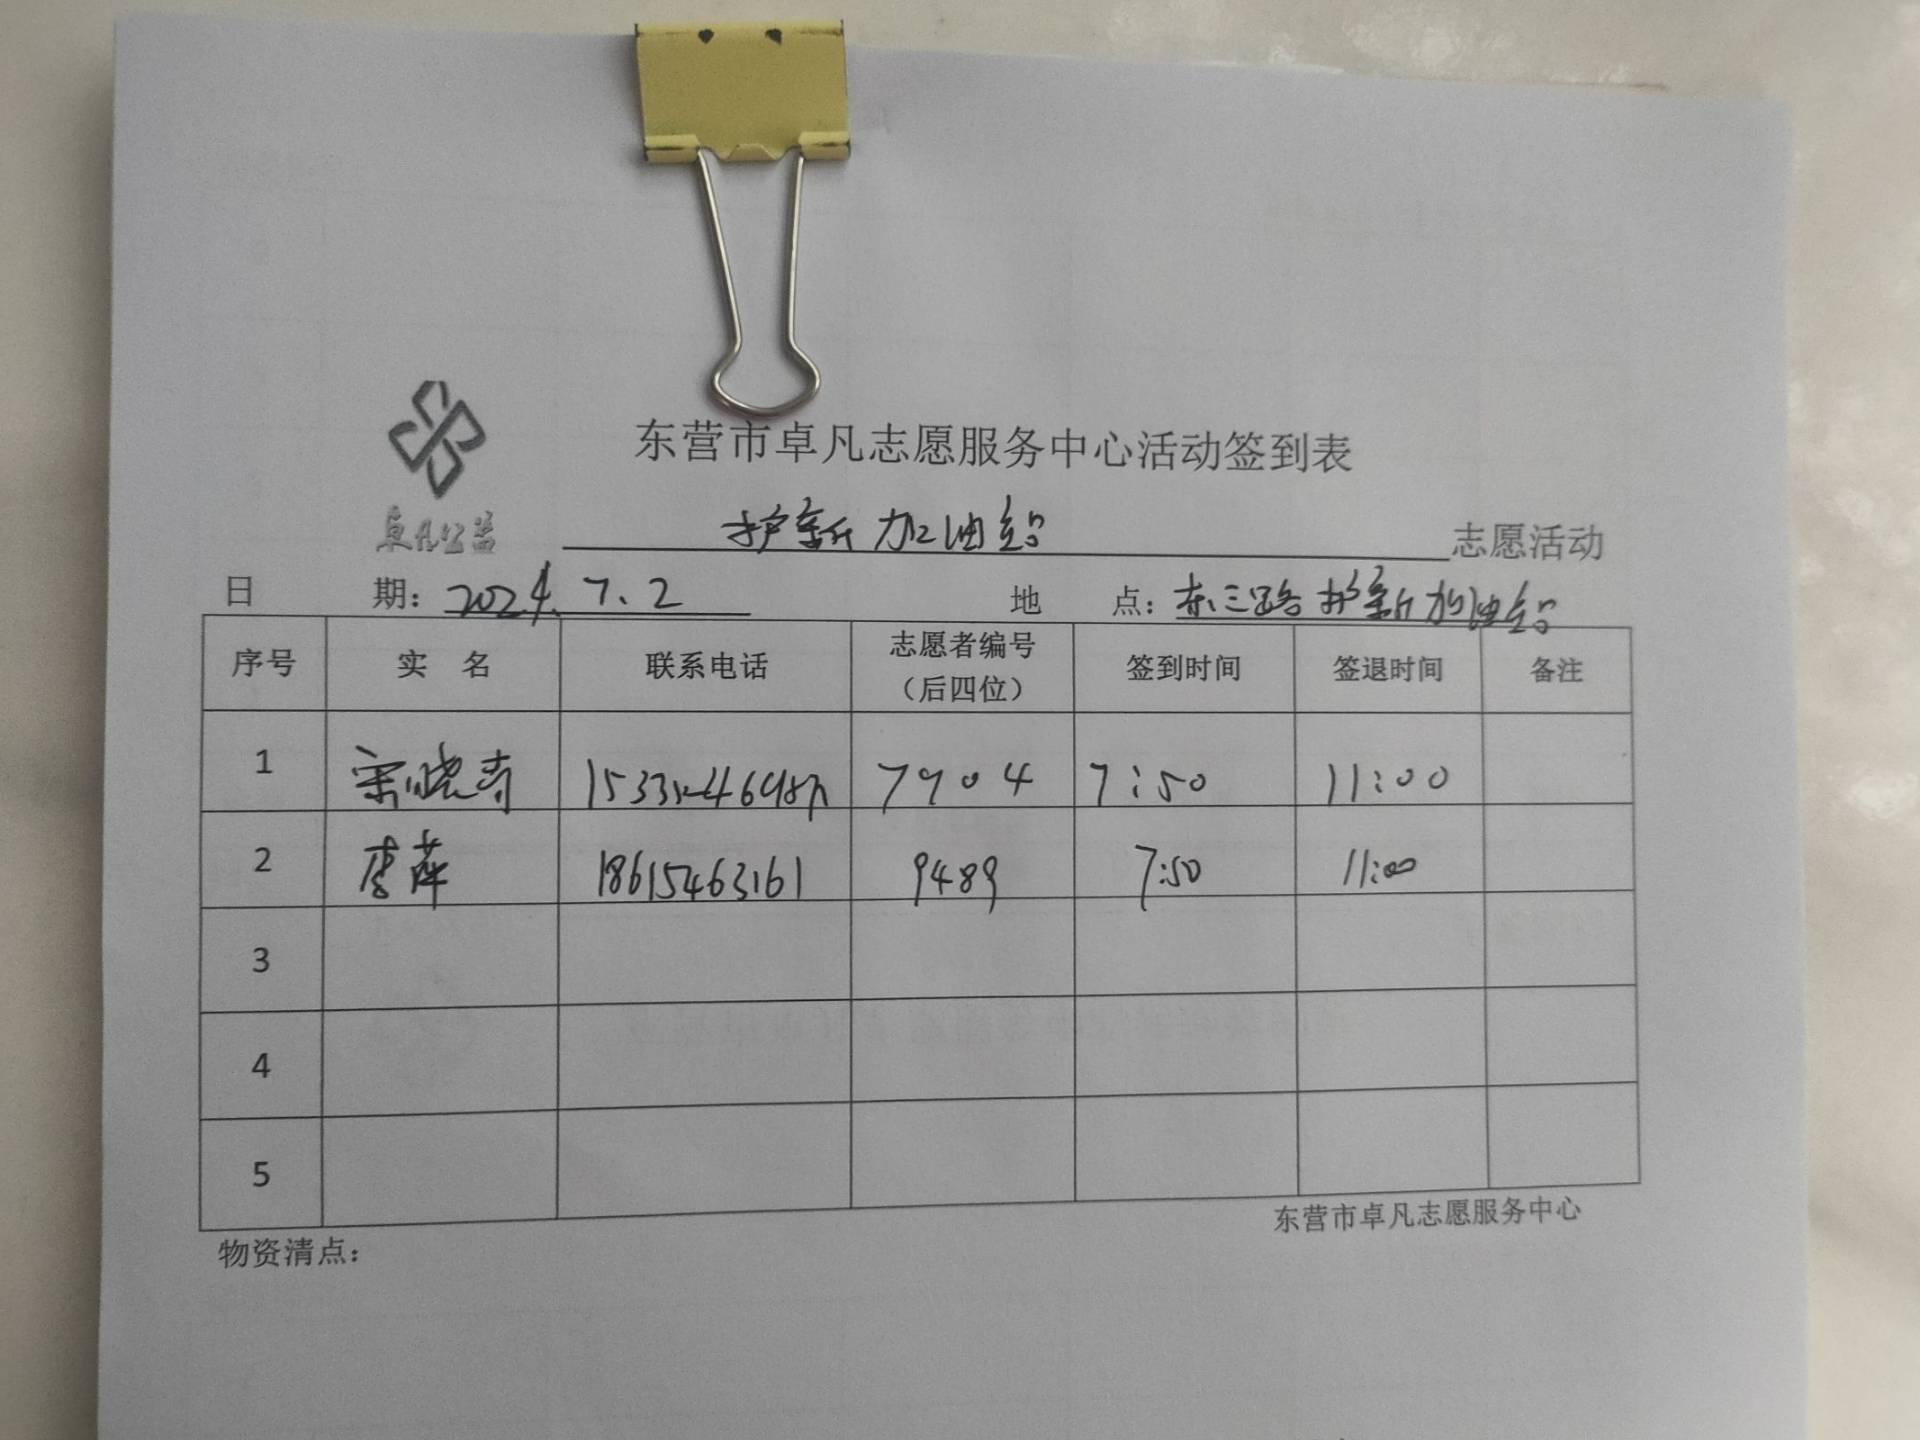 东营市卓凡志愿服务中心活动签到表
卓凡公益
护新加油站 志愿活动
日 期：2024.7.2 地 点：东三路护新加油站
序号 实 名 联系电话 志愿者编号（后四位） 签到时间 签退时间 备注
1 宋晓 7904 7:50 11:00
2 李萍 18615463161 9489 7:50 11:00
3
4
5
东营市卓凡志愿服务中心
物资清点：